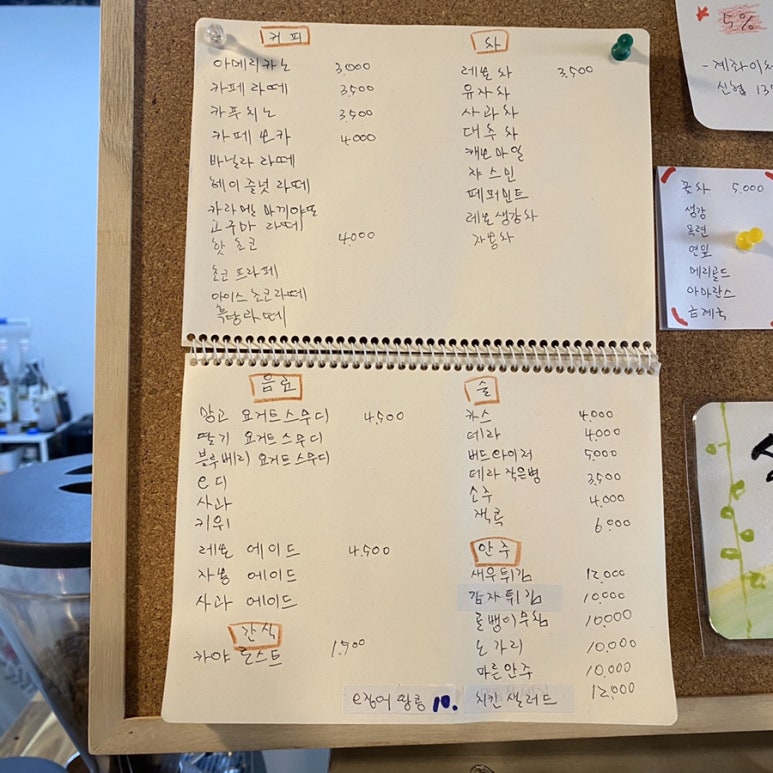 커피
아메리카노 3,000
카페라떼 3,500
카푸치노 3,500
카페모카 4,000
바닐라 라떼
헤이즐넛 라떼
카라멜 마끼야또
고구마 라떼
핫 초코 4,000
초코 프라페
아이스 초코라떼
흑당라떼
차
레몬차 3,500
유자차
사과차
대추차
캐모마일
쟈스민
페퍼민트
레몬생강차
자몽차
음료
망고 요거트스무디 4,500
딸기 요거트스무디
블루베리 요거트스무디
오디
사과
키위
레몬 에이드 4,500
자몽 에이드
사과 에이드
간식
카야 토스트 1,500
술
카스 4,000
테라 4,000
버드와이저 5,000
테라 작은병 3,500
소주 4,000
잭콕 6,000
안주
새우튀김 12,000
감자튀김 10,000
골뱅이무침 10,000
노가리 10,000
마른안주 10,000
치킨 샐러드 12,000
오징어 땅콩 10.
5%
- 계좌이체
신협 13
꽃차 5,000
생강
목련
연잎
메리골드
아마란스
금계국